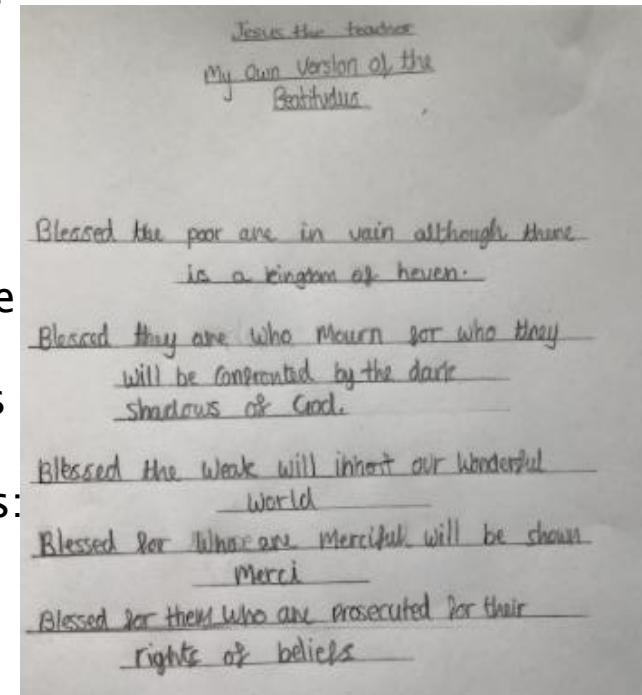 Jesus the teacher
My Own Version of the
Beatitudus
Blessed the poor are in vain although there
is a kingdom of heven.
Blessed they are who mourn for who they
will be confronted by the dark
shadows of God.
Blessed the weak will inherit our wonderful
world
Blessed for who are merciful will be shown
merci
Blessed for them who are prosecuted for their
rights of beliefs